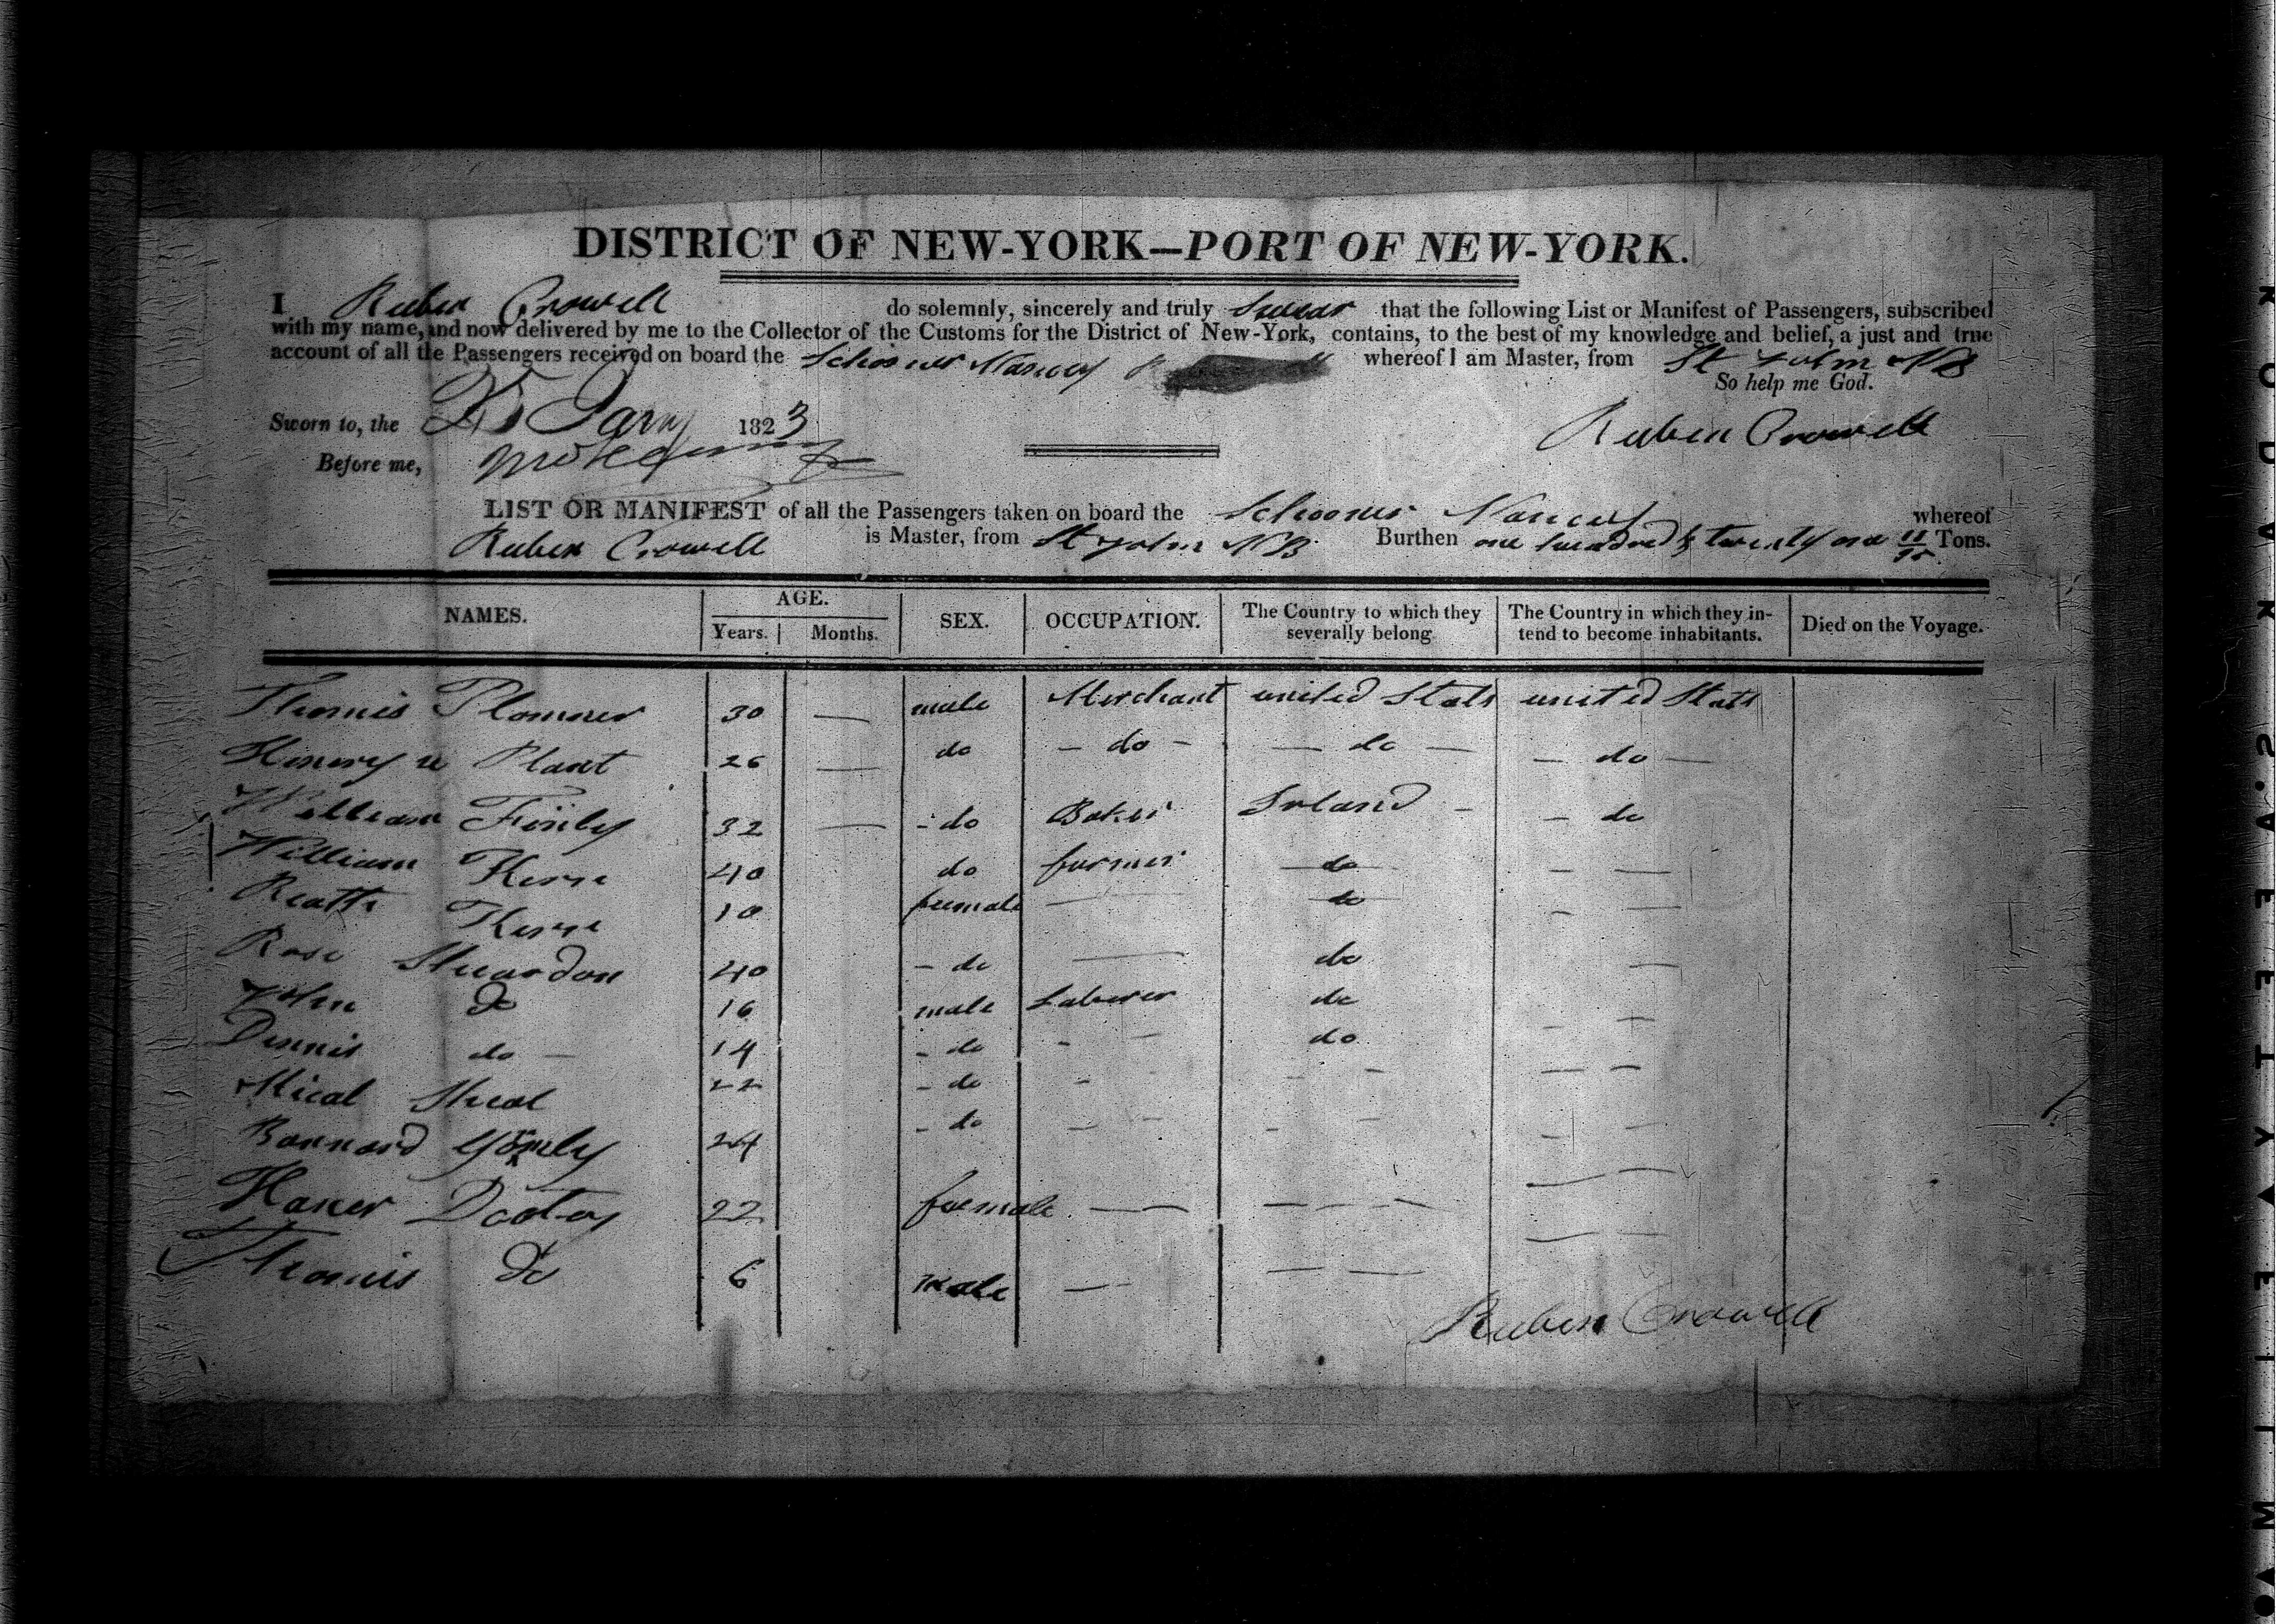 DISTRICT OF NEW-YORK—PORT OF NEW-YORK.
I Ruben Crowell do solemnly, sincerely and truly Swear that the following List or Manifest of Passengers, subscribed
with my name, and now delivered by me to the Collector of the Customs for the District of New-York, contains, to the best of my knowledge and belief, a just and true
account of all the Passengers received on board the Schooner Nancy whereof I am Master, from St John NB
So help me God.
Sworn to, the Jany 1823 Ruben Crowell
Before me,
LIST OR MANIFEST of all the Passengers taken on board the Schooner Nancy whereof
Ruben Crowell is Master, from St John NB Burthen one hundred & twenty one 11/95 Tons.
NAMES. AGE. Years. Months. SEX. OCCUPATION. The Country to which they severally belong The Country in which they intend to become inhabitants. Died on the Voyage.
Thomis Plomner 30 — male Merchant united Stats united Stats
Henery Plant 26 — do — do — — do — — do —
William Finly 32 — - do Baker Irland - - do
William Kerr 40 do farmer do - —
Kerr 10 female — do - —
Rose 40 - do — do —
John do 16 male Laberer do - —
Dennis do — 14 - do - - do — —
Mical 22 - do - - - - —
Barnard 24 - do - - - - — —
Haner 22 female — — — - - — — —
Thomis do 6 male — - — — — —
Ruben Crowell
KODAK SAFETY FILM